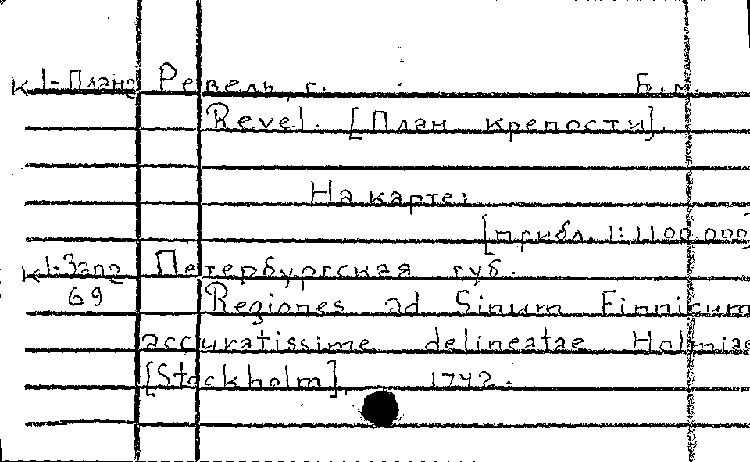 К 1-План Ревель, г. Б.м.
Revel. [План крепости].
На карте:
[прибл. 1:1100 000]
К 1-Зап Петербургская губ.
69 Regiones ad Sinum Finnicum
accuratissime delineatae Holmiae
[Stockholm], 1742.